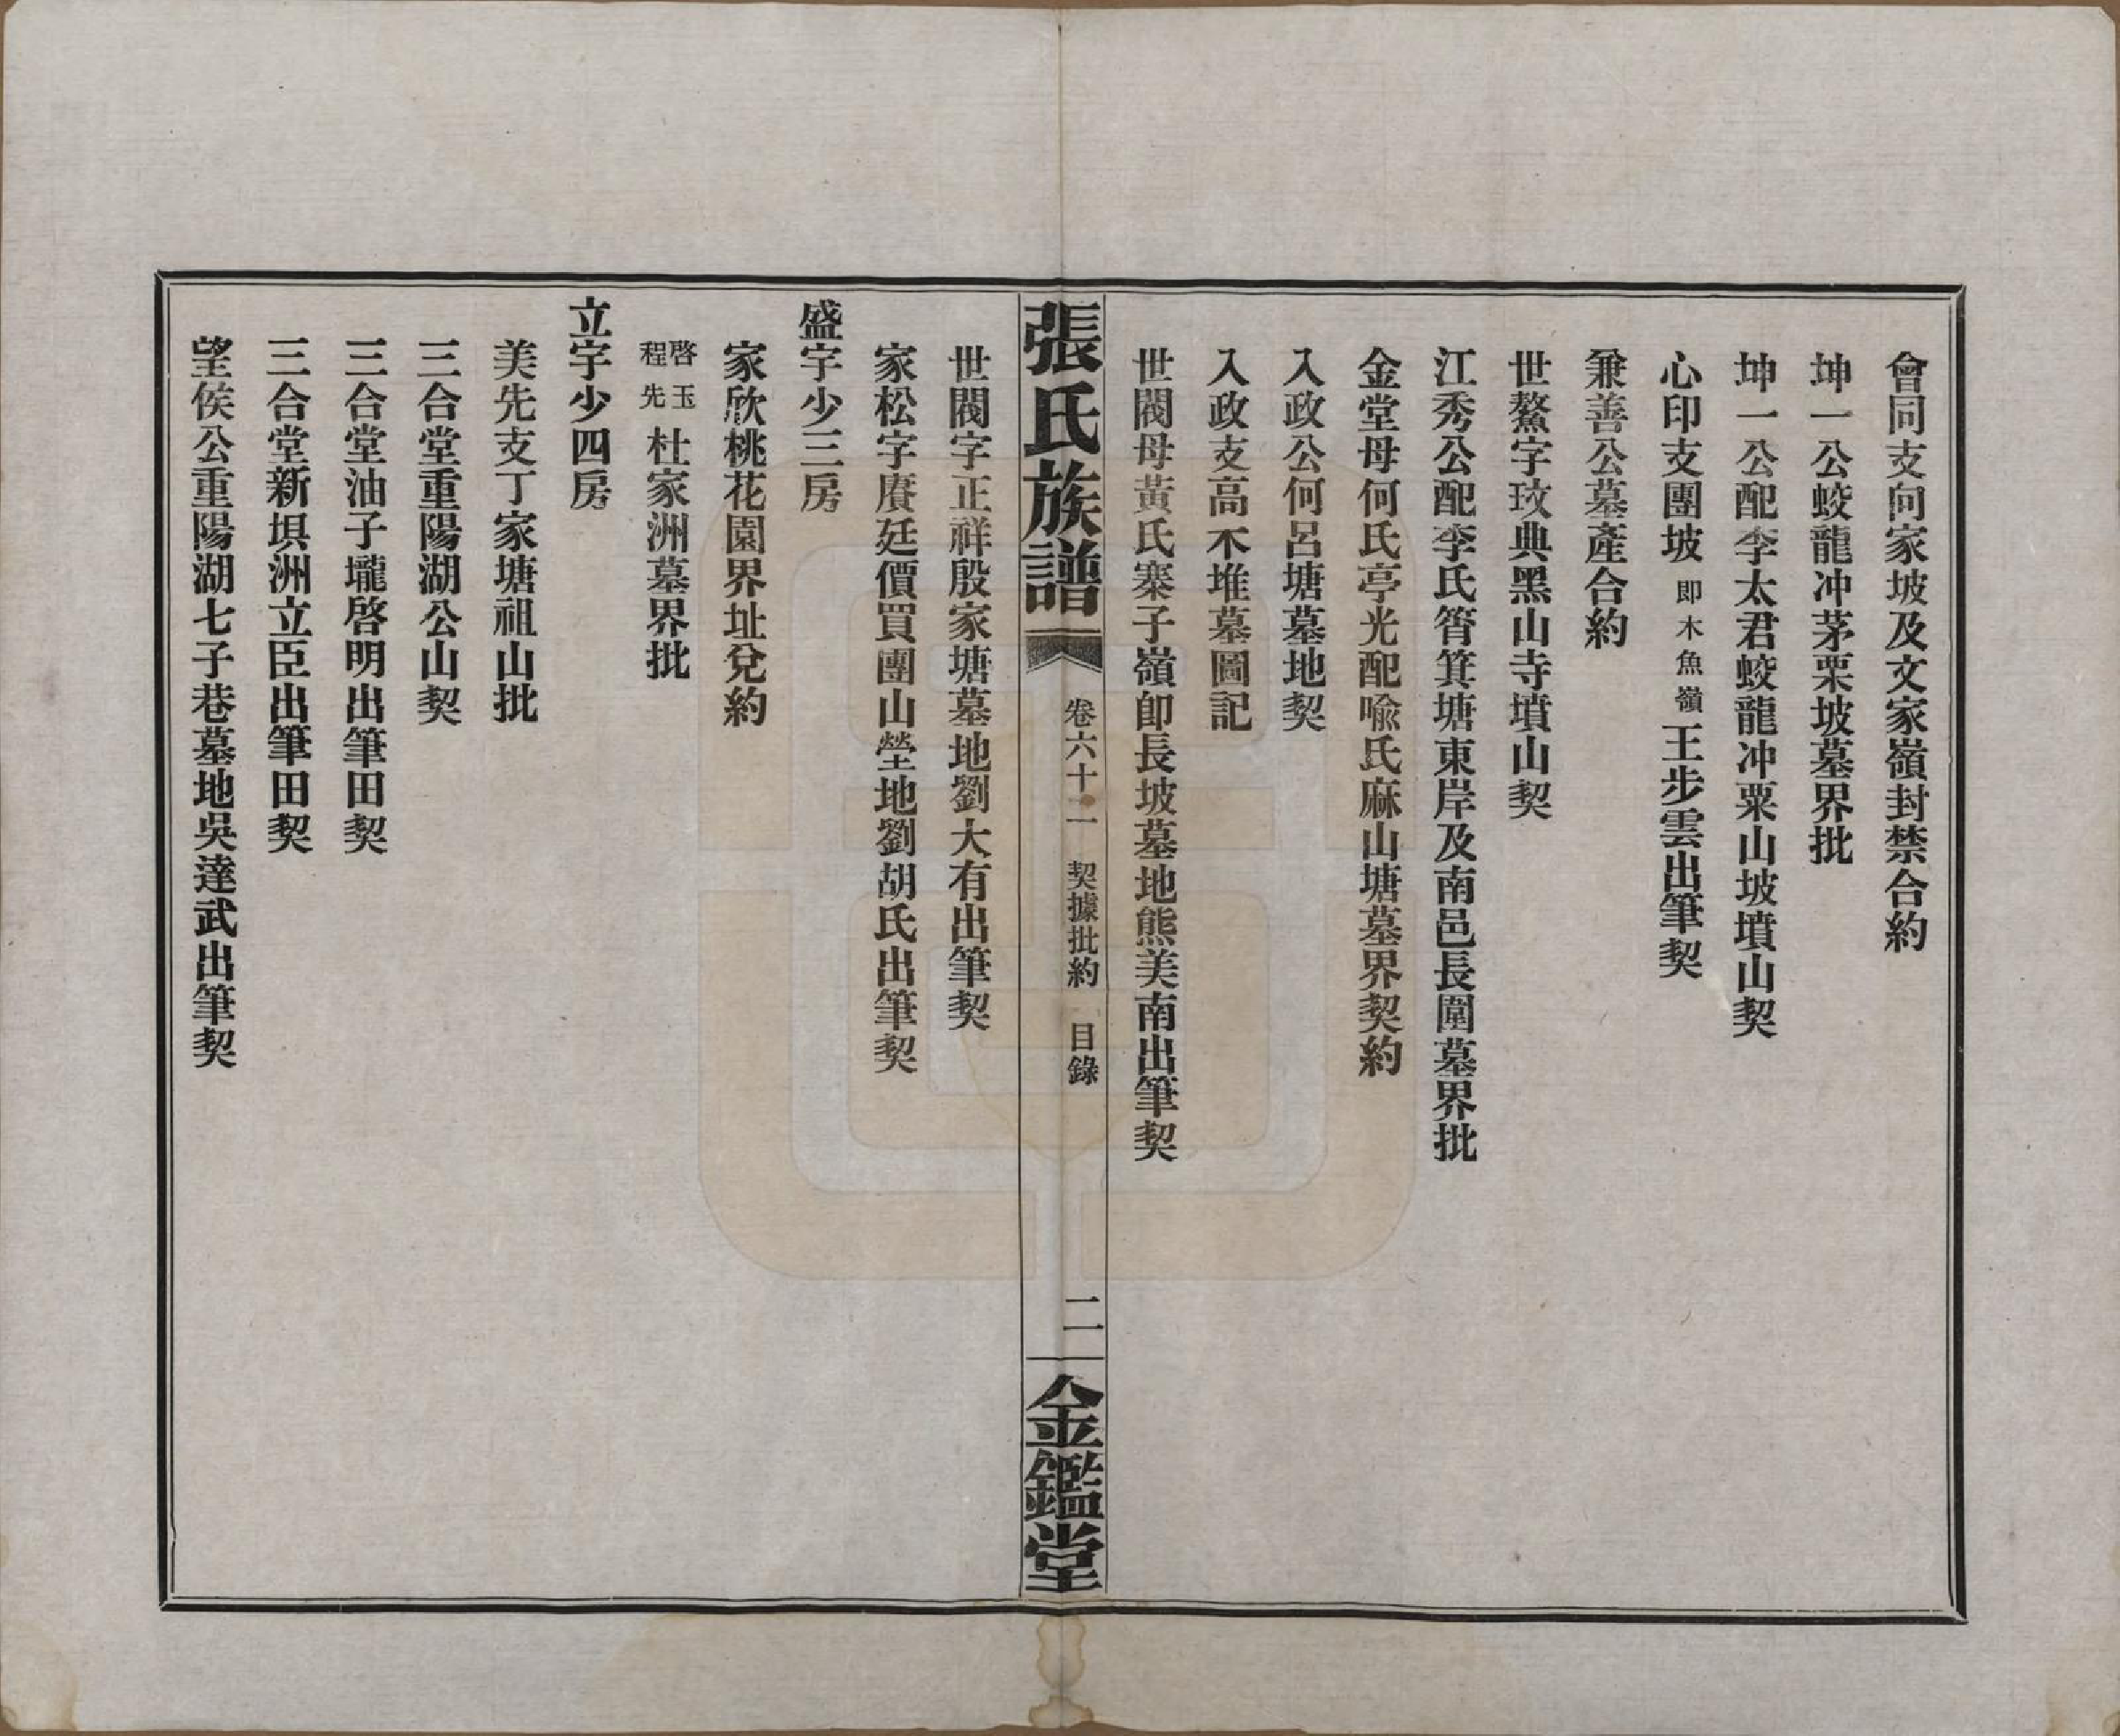 會同支向家坡及文家嶺封禁合約
坤一公蛟龍冲茅栗坡墓界批
坤一公配李太君蛟龍冲粟山坡墳山契
心印支團坡即木魚嶺王步雲出筆契
兼善公墓產合約
世鰲字玟典黑山寺墳山契
江秀公配李氏筲箕塘東岸及南邑長圍墓界批
金堂母何氏亭光配喩氏麻山塘墓界契約
入政公何呂塘墓地契
入政支高木堆墓圖記
世閥母黃氏寨子嶺卽長坡墓地熊美南出筆契
張氏族譜 卷六十二 契據批約 目錄 二 金鑑堂
世閥字正祥殷家塘墓地劉大有出筆契
家松字賡廷價買團山塋地劉胡氏出筆契
盛宇少三房
家欣桃花園界址兌約
啓玉程先杜家洲墓界批
立宇少四房
美先支丁家塘祖山批
三合堂重陽湖公山契
三合堂油子壠啓明出筆田契
三合堂新垻洲立臣出筆田契
望侯公重陽湖七子巷墓地吳達武出筆契